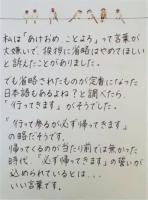 私は「あけおめ ことよろ」って言葉が
大嫌いで、挨拶に省略はやめてほしい
と訴えたことがありました。
でも省略されたものが定着になった
日本語もあるよね？と調べたら、
「行ってきます」がそうでした。
「行って参るが必ず帰ってきます」
の略だそうです。
帰ってくるのが当たり前では無かった
時代、「必ず帰ってきます」の誓いが
込められているとは...
いい言葉です。